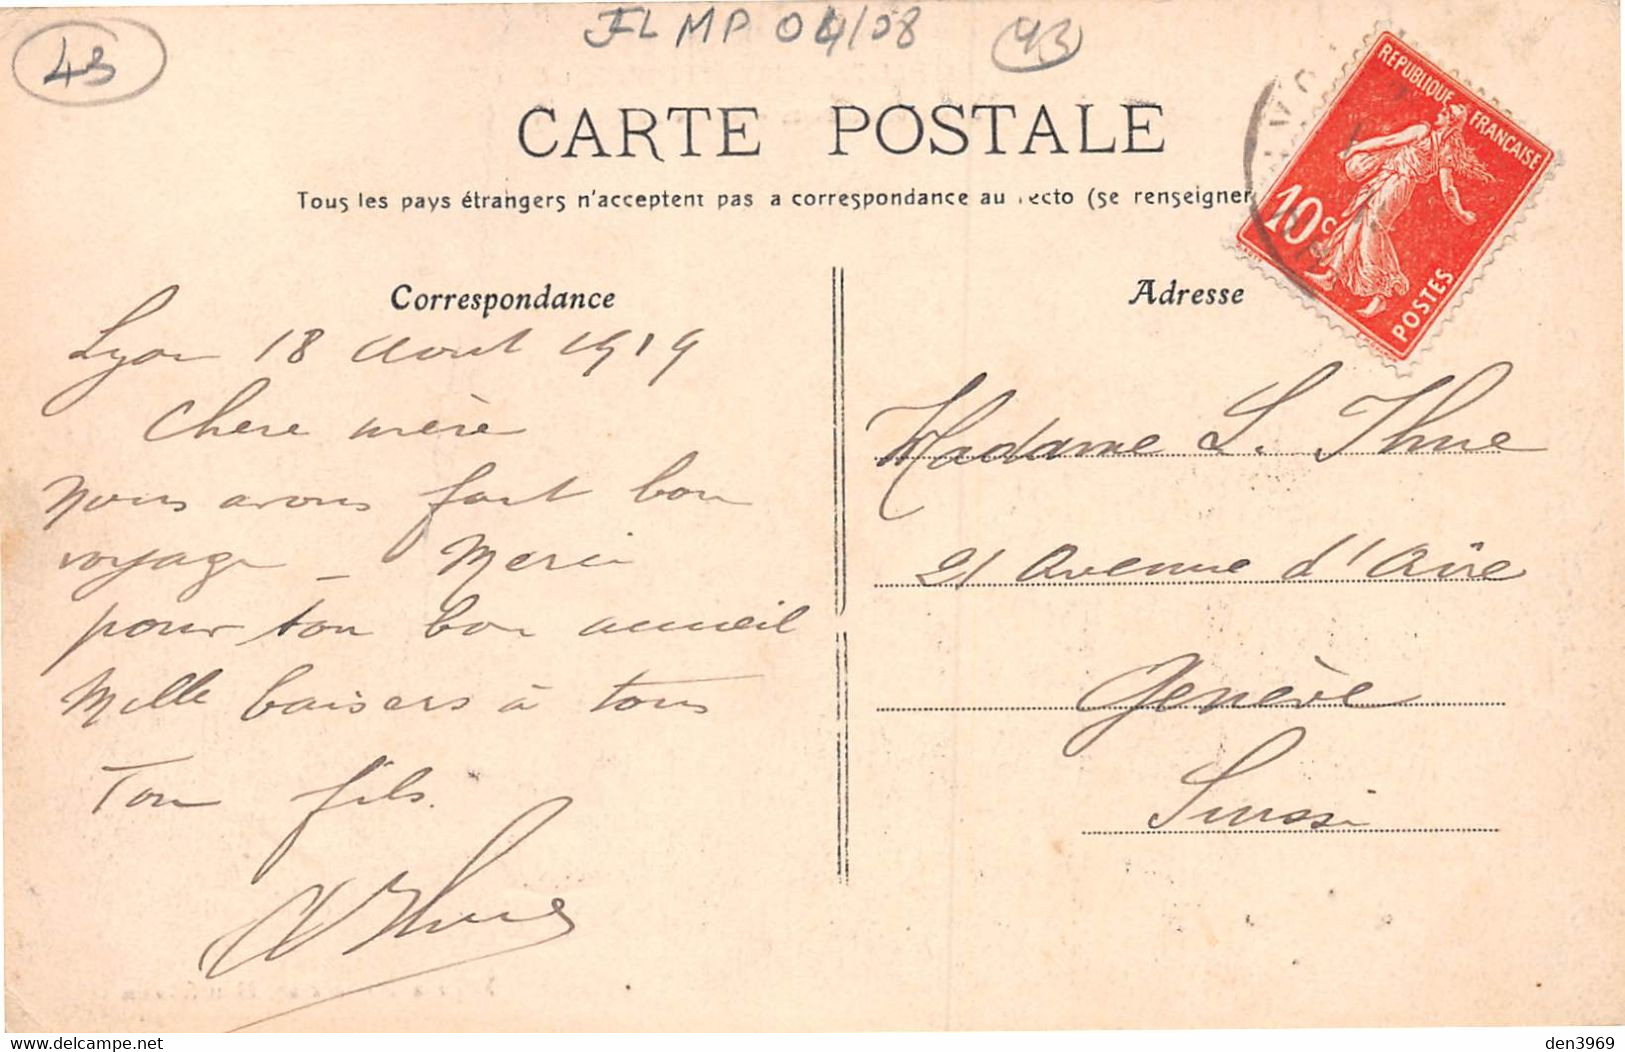 43
JLMP 04/08
43
CARTE POSTALE
Tous les pays étrangers n'acceptent pas a correspondance au recto (se renseigner
REPUBLIQUE FRANÇAISE
10c
POSTES
Correspondance
Lyon 18 Aout 1919
Chere mère
Nous avons fait bon
voyage _ Merci
pour ton bon accueil
Mille baisers à tous
Ton fils.
Thue
Adresse
Madame L. Thue
21 Avenue d'Aïre
Genève
Suisse
den3969